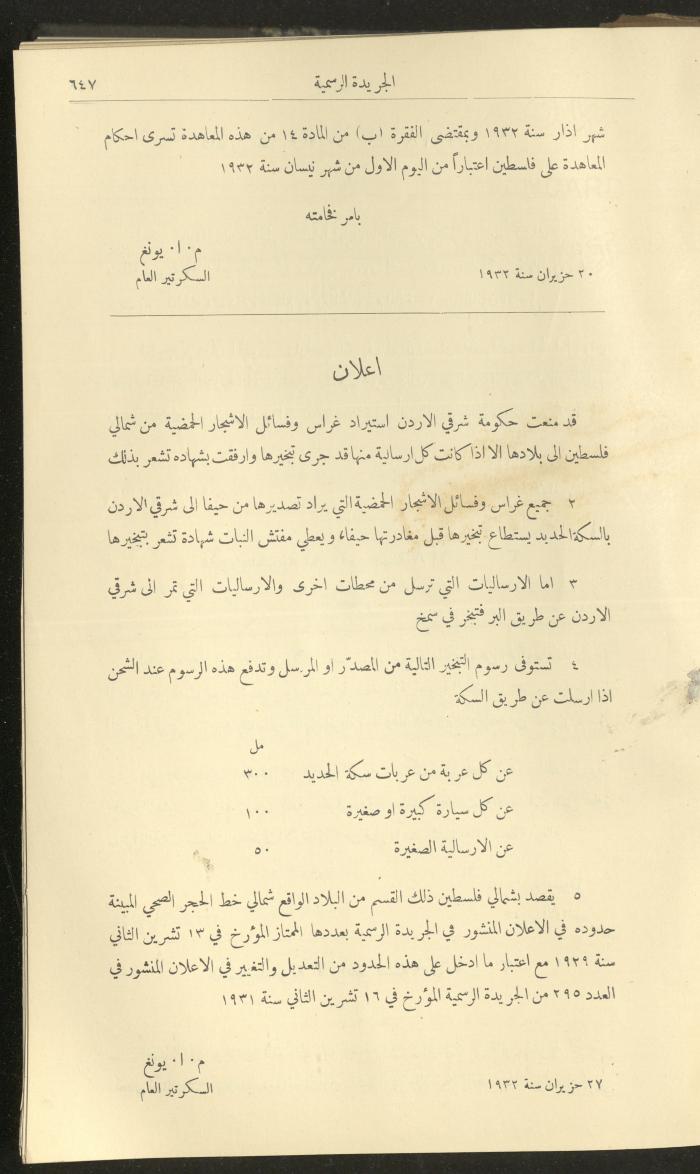 الجريدة الرسمية
٦٤٧
شهر اذار سنة ١٩٣٢ وبمقتضى الفقرة (ب) من المادة ١٤ من هذه المعاهدة تسرى احكام
المعاهدة على فلسطين اعتباراً من اليوم الاول من شهر نيسان سنة ١٩٣٢
بامر فخامته
م٠ ا٠ يونغ
السكرتير العام
٢٠ حزيران سنة ١٩٣٢
اعلان
قد منعت حكومة شرقي الاردن استيراد غراس وفسائل الاشجار الحمضية من شمالي
فلسطين الى بلادها الا اذا كانت كل ارسالية منها قد جرى تبخيرها وارفقت بشهاده تشعر بذلك
٢ جميع غراس وفسائل الاشجار الحمضية التي يراد تصديرها من حيفا الى شرقي الاردن
بالسكة الحديد يستطاع تبخيرها قبل مغادرتها حيفاء ويعطي مفتش النبات شهادة تشعر بتبخيرها
٣ اما الارساليات التي ترسل من محطات اخرى والارساليات التي تمر الى شرقي
الاردن عن طريق البر فتبخر في سمخ
٤ تستوفى رسوم التبخير التالية من المصدّر او المرسل وتدفع هذه الرسوم عند الشحن
اذا ارسلت عن طريق السكة
مل
عن كل عربة من عربات سكة الحديد ٣٠٠
عن كل سيارة كبيرة او صغيرة ١٠٠
عن الارسالية الصغيرة ٥٠
٥ يقصد بشمالي فلسطين ذلك القسم من البلاد الواقع شمالي خط الحجر الصحي المبينة
حدوده في الاعلان المنشور في الجريدة الرسمية بعددها الممتاز المؤرخ في ١٣ تشرين الثاني
سنة ١٩٢٩ مع اعتبار ما ادخل على هذه الحدود من التعديل والتغيير في الاعلان المنشور في
العدد ٢٩٥ من الجريدة الرسمية المؤرخ في ١٦ تشرين الثاني سنة ١٩٣١
م٠ ا٠ يونغ
السكرتير العام
٢٧ حزيران سنة ١٩٣٢